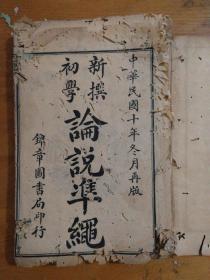 中華民國十年冬月再版
新撰
初學
論說準繩
錦章圖書局印行